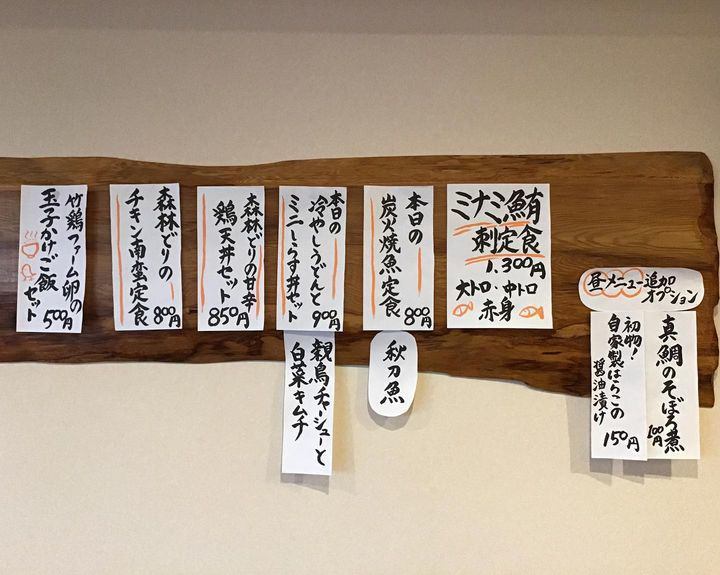 ミナミ鮪
刺定食
1.300円
大トロ・中トロ
・赤身
本日の
炭火焼魚定食
800円
秋刀魚
本日の
冷やしうどんと
ミニしらす丼セット
900円
親鳥チャーシューと
白菜キムチ
森林どりの甘辛
鶏天丼セット
850円
森林どりの
チキン南蛮定食
800円
竹鶏ファーム卵の
玉子かけご飯
セット
500円
昼メニュー追加
オプション
真鯛のそぼろ煮
100円
初物!
自家製はらこの
醤油漬け
150円